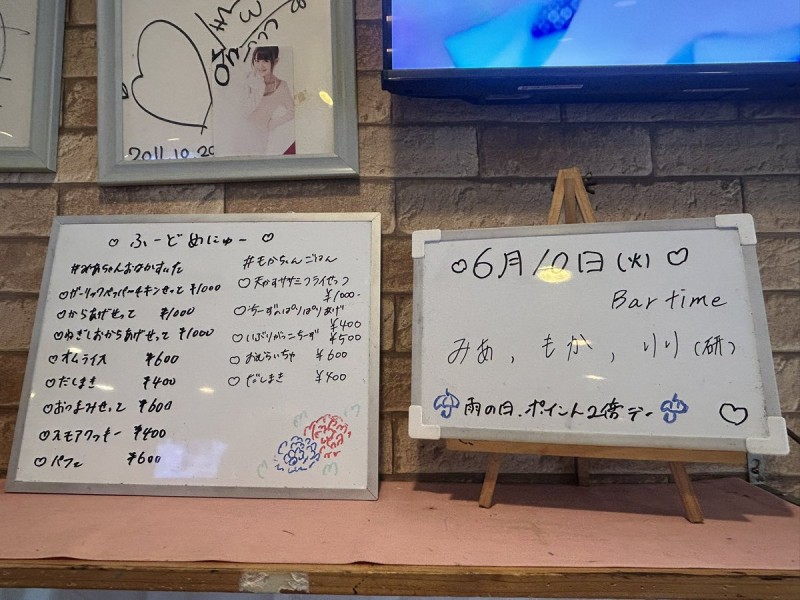 2011.10.20
♡ ふーどめにゅー ♡
#みあちゃんおなかすいた
♡ガーリックペッパーチキンせって ¥1000
♡からあげせって ¥1000
♡ねぎしおからあげせって ¥1000
♡オムライス ¥600
♡だしまき ¥400
♡おつまみせって ¥600
♡スモアクッキー ¥400
♡パフェ ¥600
#もかちゃんごはん
♡天かすササミフライせっつ
¥1000-
♡ちーずのぱりぱりあげ
¥400
♡いぶりがっこちーず ¥500
♡おむらいちゃ ¥600
♡だしまき ¥400
♡6月10日(火)♡
Bar time
みあ, もか, りり(研)
雨の日.ポイント2倍デー